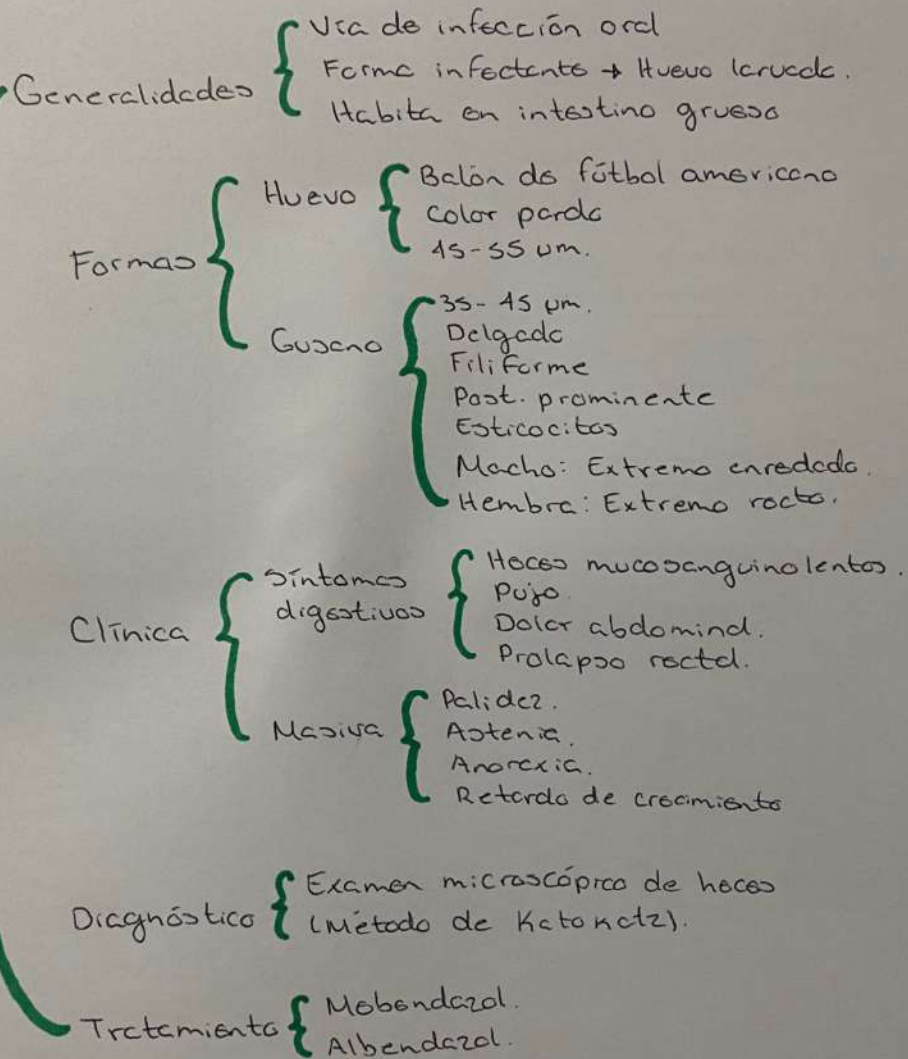 Generalidades
Vía de infección oral
Forma infectante → Huevo larvado.
Habita en intestino grueso
Formas
Huevo
Balón de fútbol americano
Color pardo
45-55 um.
Gusano
35-45 µm.
Delgado
Filiforme
Post. prominente
Esticocitos
Macho: Extremo enredado.
Hembra: Extremo recto.
Clínica
Síntomas
digestivos
Heces mucosanguinolentos.
Pujo.
Dolor abdominal.
Prolapso rectal.
Masiva
Palidez.
Astenia.
Anorexia.
Retardo de crecimiento
Diagnóstico
Examen microscópico de heces
(Método de Katokatz).
Tratamiento
Mebendazol.
Albendazol.